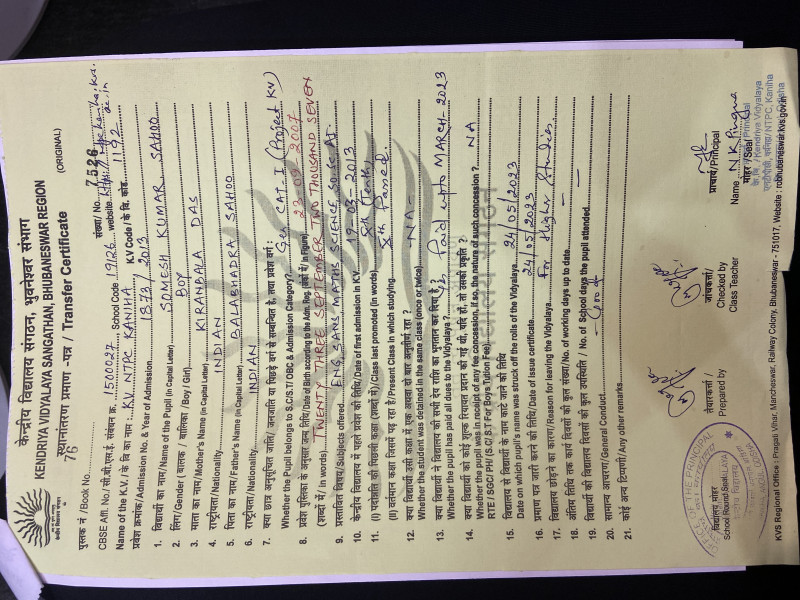 केन्द्रीय विद्यालय संगठन, भुवनेश्वर संभाग
KENDRIYA VIDYALAYA SANGATHAN, BHUBANESWAR REGION
स्थानांतरण प्रमाण -पत्र / Transfer Certificate (ORIGINAL)
पुस्तक नं /Book No. 76 संख्या / No. 7526
CBSE Affl. No./ सी.बी.एस.ई. संबंधन क्र. 1500027 School Code 19126 website
Name of the K.V. / के वि का नाम KV NTPC KANIHA KV Code/ के वि. कोड. 1192
प्रवेश क्रमांक/Admission No. & Year of Admission 1873 / 2013
1. विद्यार्थी का नाम/Name of the Pupil (in Capital Letter) SOMESH KUMAR SAHOO
2. लिंग/Gender ( बालक / बालिका / Boy / Girl) BOY
3. माता का नाम/Mother's Name (in Capital Letter) KIRANBALA DAS
4. राष्ट्रीयता/Nationality INDIAN
5. पिता का नाम/Father's Name (in Capital Letter) BALABHADRA SAHOO
6. राष्ट्रीयता/Nationality INDIAN
7. क्या छात्र अनुसूचित जाति/ जनजाति या पिछड़े वर्ग से सम्बन्धित है, तथा प्रवेश वर्ग :
Whether the Pupil belongs to S.C/S.T/ OBC & Admission Category? Gen CAT-I (Project KV)
8. प्रवेश पुस्तिका के अनुसार जन्म तिथि/Date of Birth according to the Adm. Reg. (अंकों में/ in Figure) 23-09-2007
(शब्दों में/ in words) TWENTY THREE SEPTEMBER TWO THOUSAND SEVEN
9. प्रस्तावित विषय/Subjects offered ENG, SANS MATHS SCIENCE SO.SC AI
10. केन्द्रीय विद्यालय में पहले प्रवेश की तिथि/Date of first admission in K.V. 19-03-2013
11. (I) पदोन्नति की पिछली कक्षा (शब्दों में)/Class last promoted (in words)
(II) वर्तमान कक्षा जिसमें पढ़ रहा है/Present Class in which studying. Xth Passed
12. क्या विद्यार्थी उसी कक्षा में एक अथवा दो बार अनुत्तीर्ण रहा ?
Whether the student was retained in the same class (once or twice) -NA-
13. क्या विद्यार्थी ने विद्यालय की सभी देय राशि का भुगतान कर दिया है, ?
Whether the pupil has paid all dues to the Vidyalaya ? Yes Paid upto MARCH-2023
14. क्या विद्यार्थी को कोई शुल्क रियायत प्रदान की गई थी, यदि हाँ, तो उसकी प्रकृति ?
Whether the pupil was in receipt of any fee concession, if so, the nature of such concession ?
RTE / SGC/PH / (SC/ ST For Boys Tution Fee) NA
15. विद्यालय से विद्यार्थी के नाम काटे जाने की तिथि
Date on which pupil's name was struck off the rolls of the Vidyalaya 24/05/2023
16. प्रमाण पत्र जारी करने की तिथि/Date of issue certificate. 24/05/2023
17. विद्यालय छोड़ने का कारण/Reason for leaving the Vidyalaya. For Higher Studies
18. अंतिम तिथि तक कार्य दिवसों की कुल संख्या/No. of working days up to date –
19. विद्यार्थी की विद्यालय दिवसों की कुल उपस्थिति / No. of School days the pupil attended –
20. सामान्य आचरण/General Conduct Good
21. कोई अन्य टिप्पणी/Any other remarks
लेखाकर्ता /
Prepared by
जांचकर्ता/
Checked by
Class Teacher
प्राचार्य/Principal
Name N K Pingua
मोहर /Seal
विद्यालय मोहर
School Round Seal
KVS Regional Office : Pragati Vihar, Mancheswar, Railway Colony, Bhubaneswar - 751017, Website : robhubaneswar.kvs.gov.in